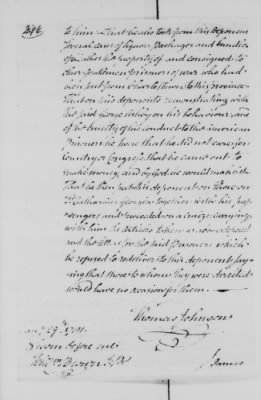 to him — that he also took from this deponent
several Cases of liquors, Packages and bundles
of all the property of and consigned to
other gentlemen prisoners of war who had
been sent from Charlestown to this province
That on this deponents remonstrating with
the said George on his behaviour and
of the cruelty of his conduct to the american
Prisoners he swore that he did not care for
Country or Congress, that he came out to
make money, and by God he would make it
That he then put this deponent on shore on
St Catharines Georgia together with his pass
engers and proceeded on a cruize carrying
with him the articles taken as aforesaid
and the letters for the said Prisoners which
he refused to redeliver to this deponent say
ing that those to whom they were directed
would have no occasion for them —
Thomas Johnson
Sworn before me
James